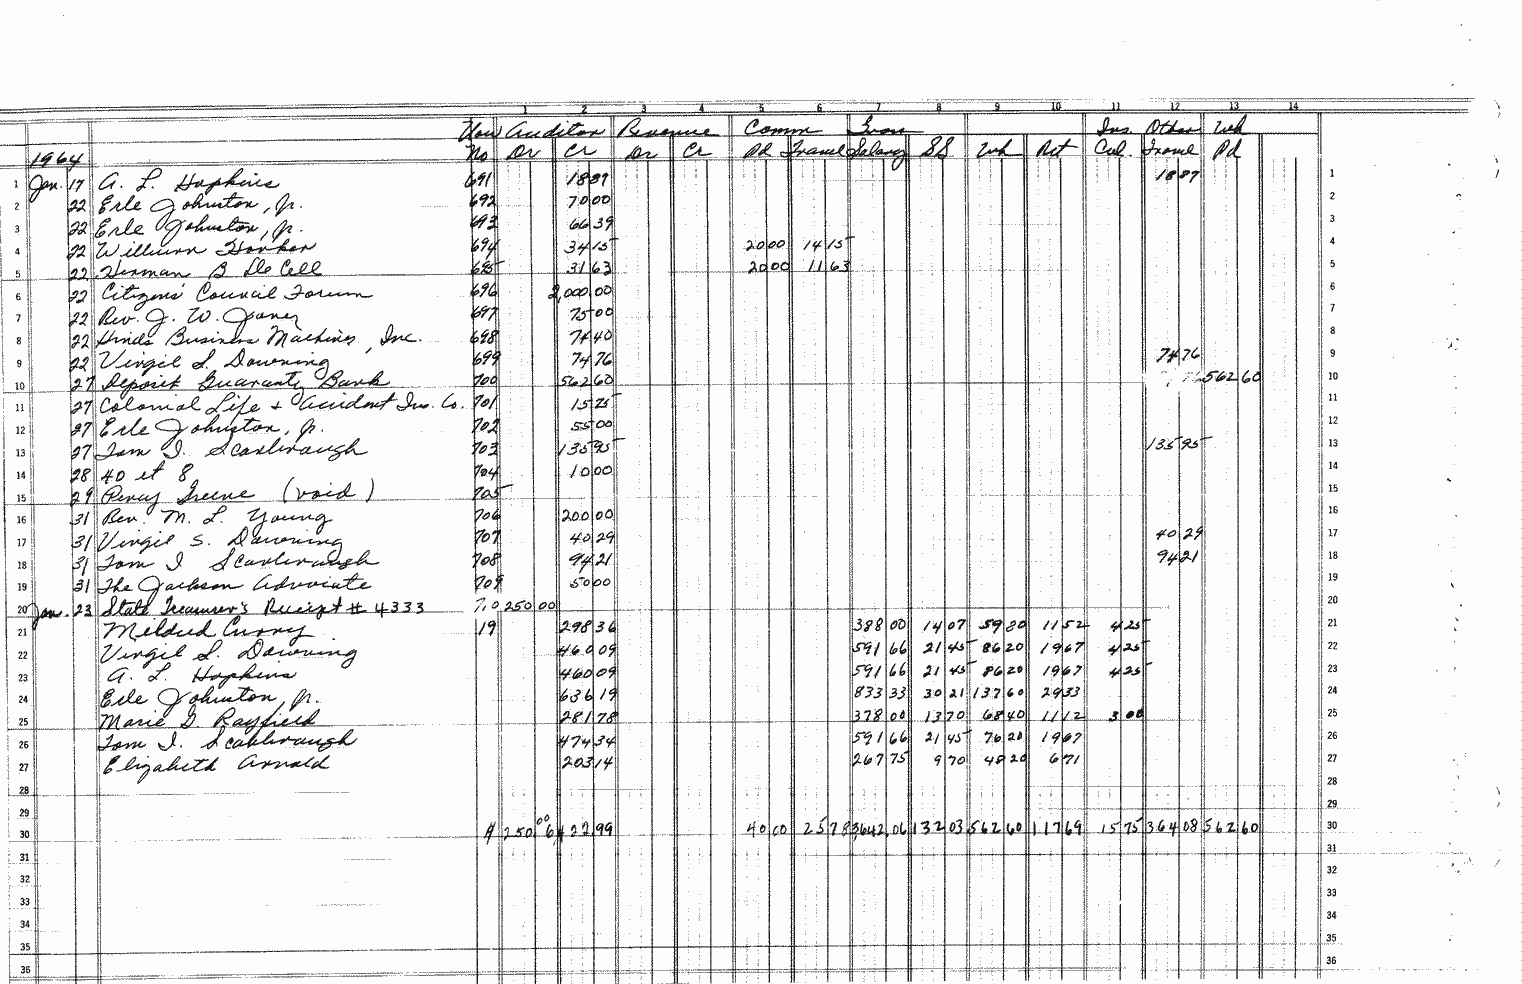 1 2 3 4 5 6 7 8 9 10 11 12 13 14
Auditor Revenue Comm Ins. Other Wh
1964 No Dr Cr Dr Cr Pd Travel Salary SS Wh Ret Cul. Travel Pd
1 Jan. 17 A. L. Hopkins 691 18 87 18 87 1
2 22 Erle Johnston, Jr. 692 70 00 2
3 22 Erle Johnston, Jr. 693 66 39 3
4 22 William 694 34 15 20 00 14 15 4
5 22 Herman B De Cell 695 31 63 20 00 11 63 5
6 22 Citizens' Council Forum 696 2,000.00 6
7 22 Rev. J. W. Jones 697 75 00 7
8 22 Hinds Business Machines, Inc. 698 74 40 8
9 22 Virgil S. Downing 699 74 76 74 76 9
10 27 Deposit Guaranty Bank 700 562 60 562 60 10
11 27 Colonial Life + Accident Ins. Co. 701 15 75 11
12 27 Erle Johnston, Jr. 702 55 00 12
13 27 Tom I. Scarbrough 703 135 95 135 95 13
14 28 40 et 8 704 10 00 14
15 29 Percy Greene (void) 705 15
16 31 Rev. M. L. Young 706 200 00 16
17 31 Virgil S. Downing 707 40 29 40 29 17
18 31 Tom I Scarbrough 708 94 21 94 21 18
19 31 The Jackson Advocate 709 50 00 19
20 Jan. 23 State Treasurer's Receipt # 4333 710 250 00 20
21 Mildred Curry 19 298 36 388 00 14 07 59 80 11 52 4 25 21
22 Virgil S. Downing 460 09 591 66 21 45 86 20 19 67 4 25 22
23 A. L. Hopkins 460 09 591 66 21 45 86 20 19 67 4 25 23
24 Erle Johnston, Jr. 636 19 833 33 30 21 137 60 29 33 24
25 Marie G. Rayfield 281 78 378 00 13 70 68 40 11 12 3 00 25
26 Tom I. Scarbrough 474 34 591 66 21 45 76 20 19 67 26
27 Elizabeth Arnold 203 14 267 75 9 70 48 20 6 71 27
28 28
29 29
30 250 00 6,422.99 40 00 25 78 3,642.06 132 03 562 60 117 69 15 75 364 08 562 60 30
31 31
32 32
33 33
34 34
35 35
36 36